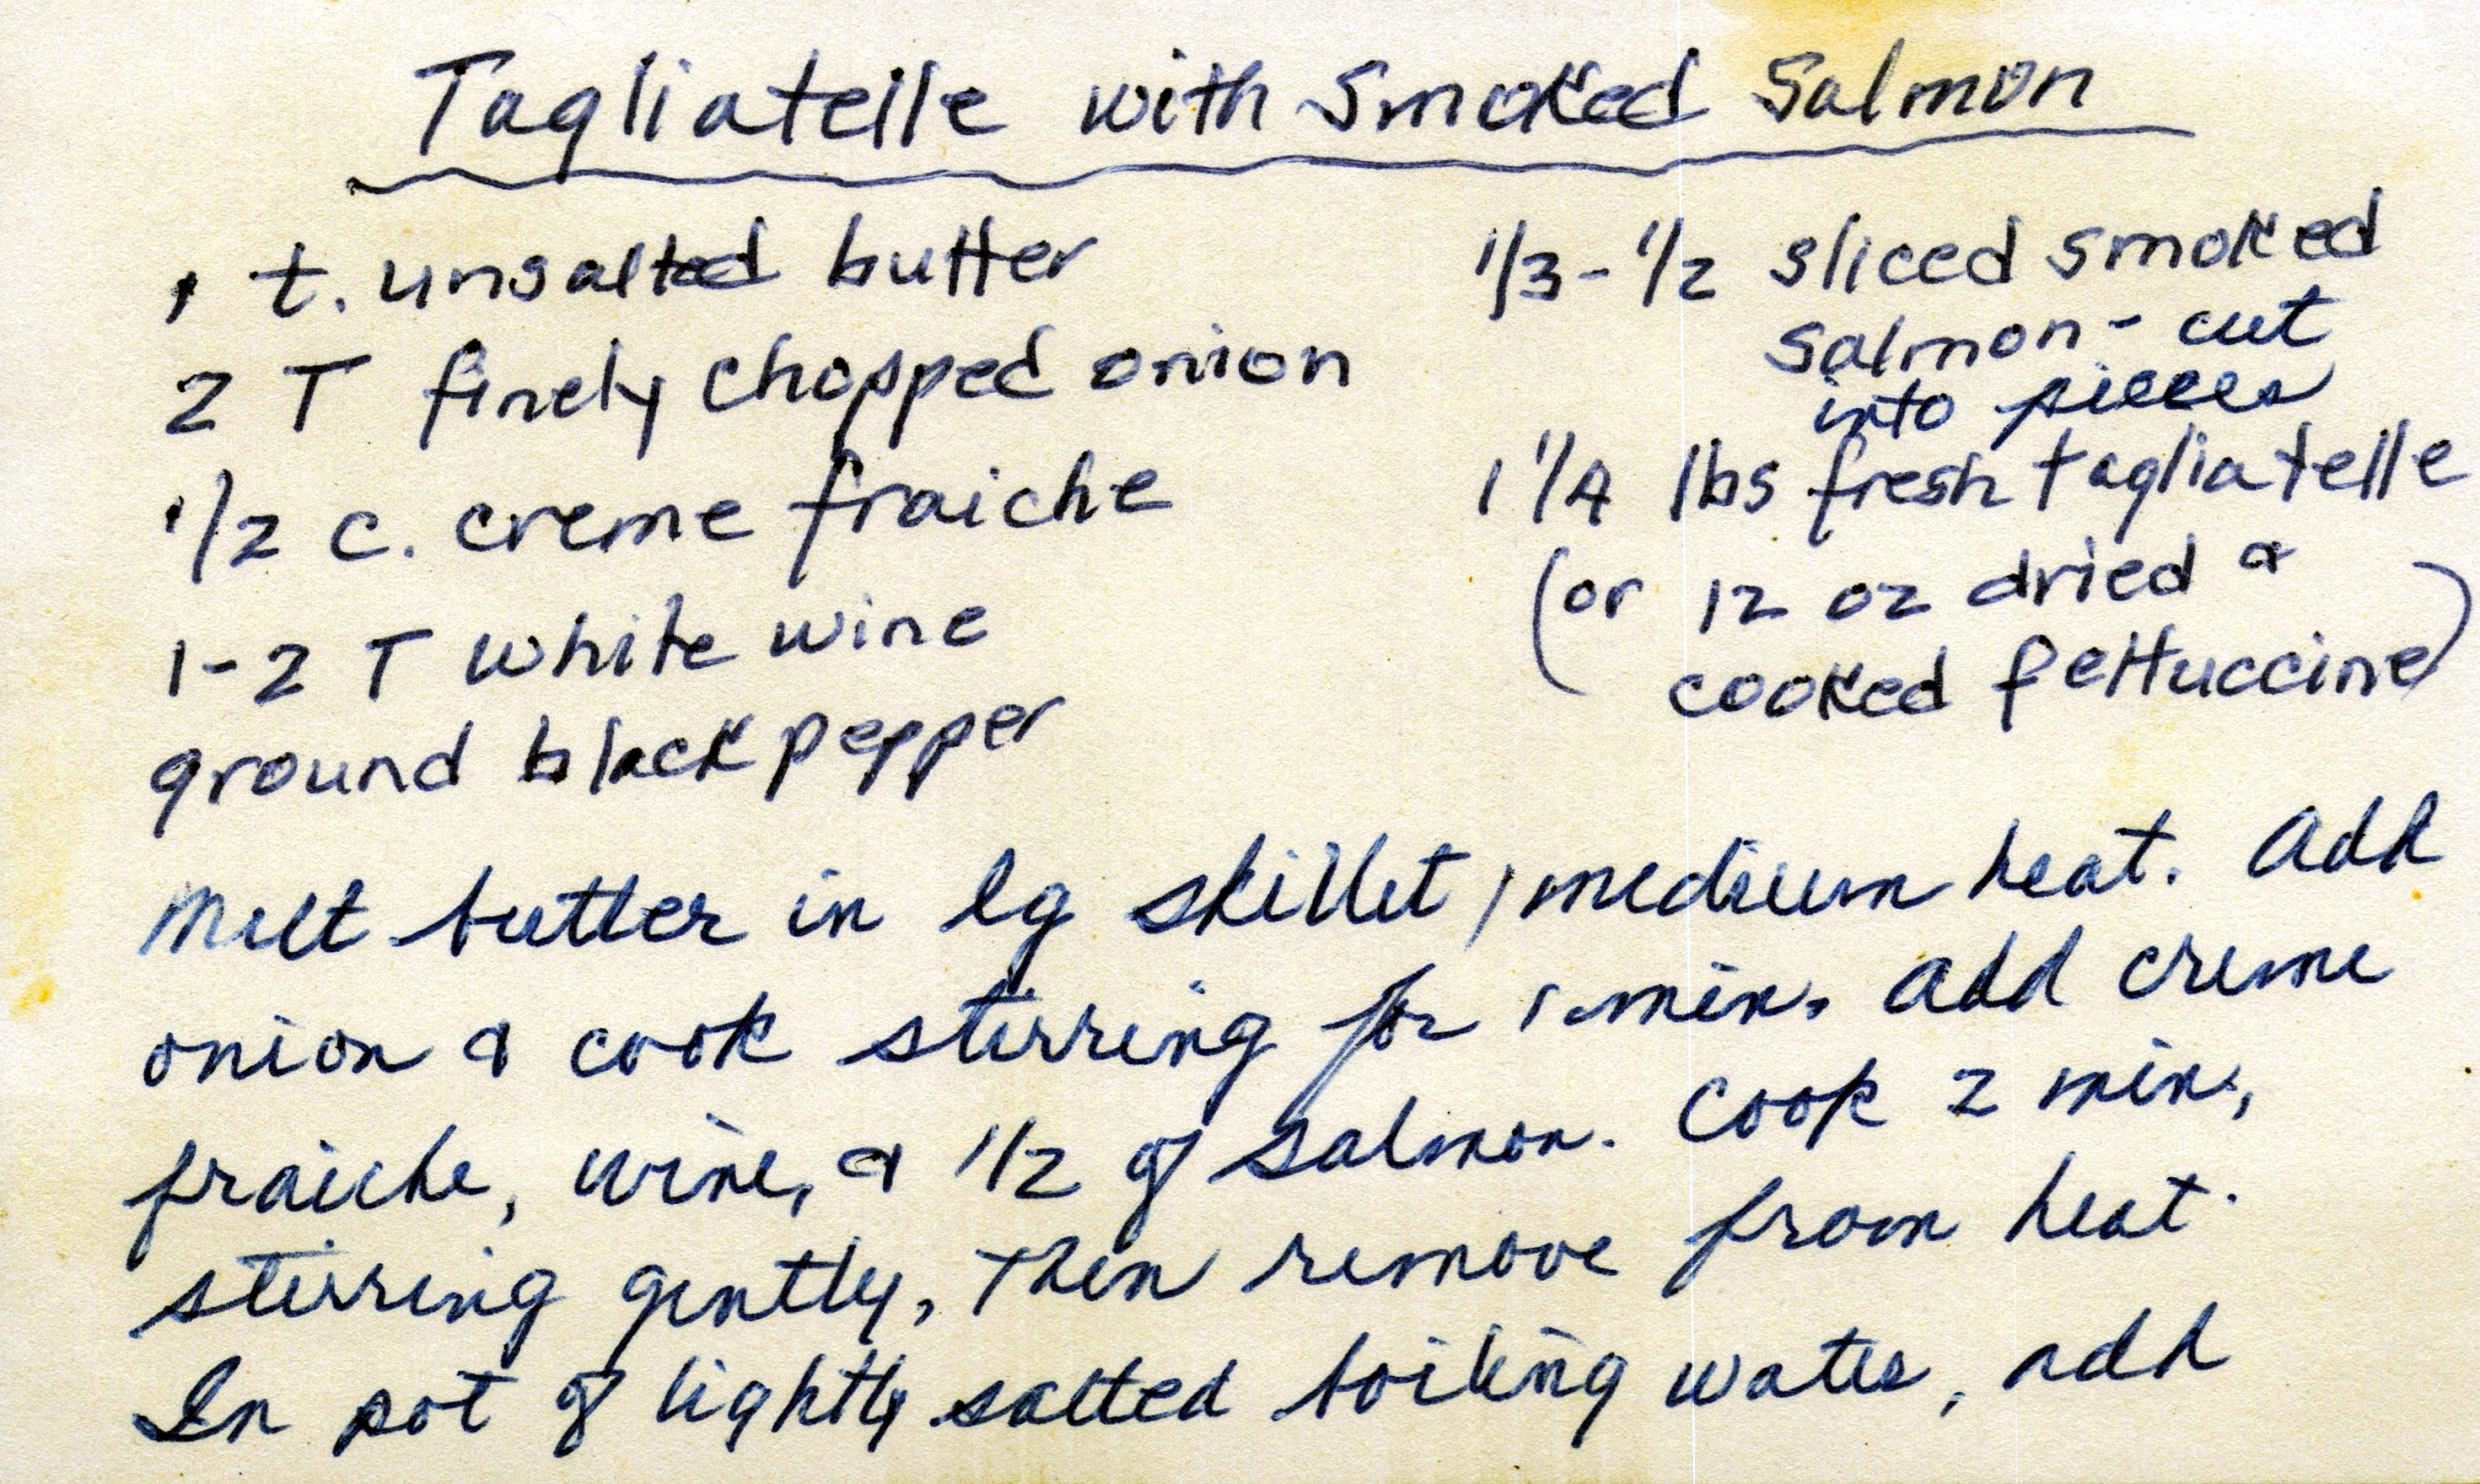 Tagliatelle with Smoked Salmon
1 t. unsalted butter
2 T finely chopped onion
1/2 c. creme fraiche
1-2 T white wine
ground black pepper
1/3-1/2 sliced smoked
salmon - cut
into pieces
1 1/4 lbs fresh tagliatelle
(or 12 oz dried &
cooked fettuccine)
Melt butter in lg skillet, medium heat. Add
onion & cook stirring for 1 min. Add creme
fraiche, wine, & 1/2 of salmon. Cook 2 min,
stirring gently, then remove from heat.
In pot of lightly salted boiling water, add